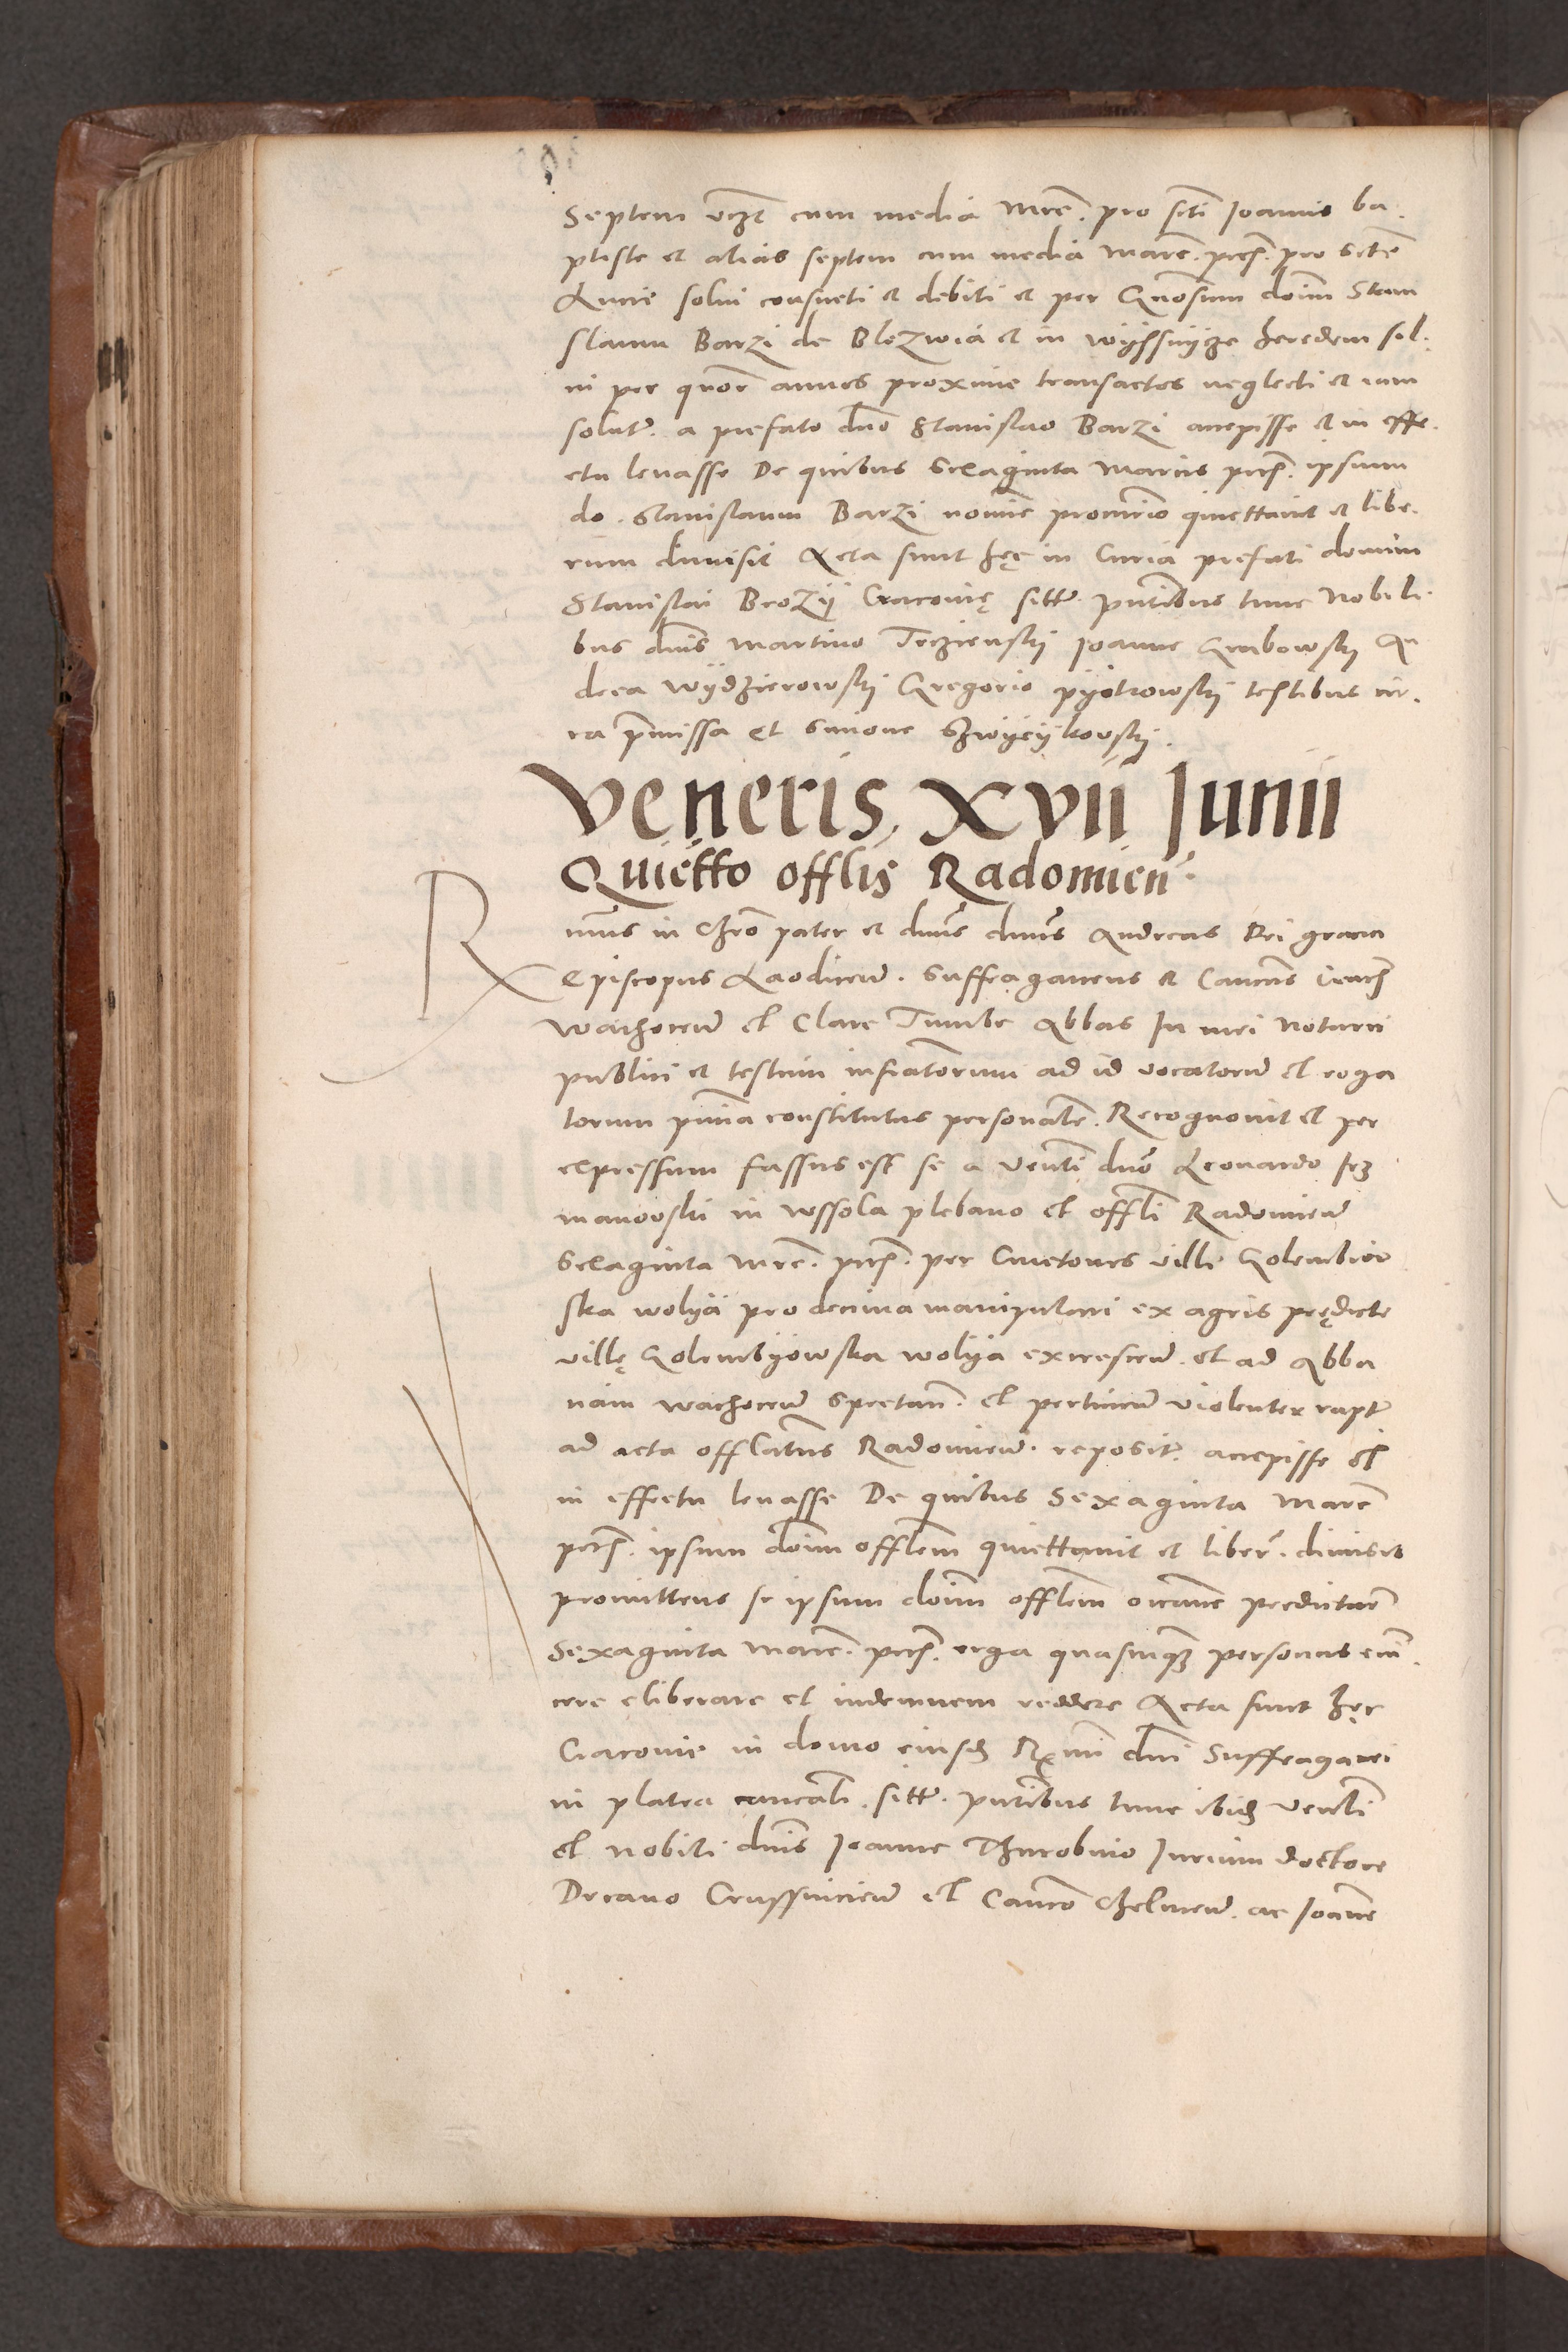 Septem vczt cum media mrc. pro scti Joannis ba.
ptiste et alias septem cum media marc. pecs. pro scte
Lucie solui consueti et debiti et per Gnosum doim Stani
slaum Barzi de Blozwia et in wyssnycze heredem sol.
ui per quor annos proxime transactos neglecti et cum
solut. a prefato dno Stanislao Barzi accepisse et in effe.
ctu leuasse De quibus Sexaginta Marcis pecs. ipsum
do. Stanislaum Barzi nomine quiettauit et libe.
rum dimisit Acta sunt hęc in Curia prefati domini
Stanislai Brozÿ Cracovię sitt. pntibus tunc Nobili.
bus dnis Martino Teczienski Joanne Grabowski An
drea Wydzierowski Gregorio pyotrowski testibus cir.
ca pmissa et Simone
Veneris, XVII Junii
Quietto offlis Radomien.
R
mus in Chro pater et dnus dnus Andreas Dei gracia
Episcopus Laodicen. Suffraganeus et Cancus Cracs
Wachocen et Clare Tumbe Abbas In mei Notarii
publici et testium infratorum ad id vocatorum et roga
torum pntia constitutus personalr. Recognouit et per
expressum fassus est se a Venli dno Leonardo Jrz
manowski in Wssola plebano et offli Radomien
Sexaginta mrc. pecs. per Cmetones ville Golembiow
ska wolya pro decima manipulari ex agris prędicte
villę Golembyowska wolya excrescen. et ad Abba
tiam Wachocen spectan. et pertinen violenter rapt
ad acta offlatus Radomien. reposit. accepisse et
in effectu leuasse De quibus Sexaginta Marc
pecs. ipsum doim offlem quiettauit et liber. dimisit
promittens se ipsum doim offlem predictarum
Sexaginta marc. pecs. erga quascunqz personas euin
cere eliberare et indemnem reddere Acta sunt hęc
Cracovie in domo eiusd Rmi dni Suffraganei
in platea canoali. sitt. pntibus tunc ibid Venli
et nobili dnis Joanne Thurobino Jurium doctore
Decano Crussuicien et Canco Chelmen. ac Joanne